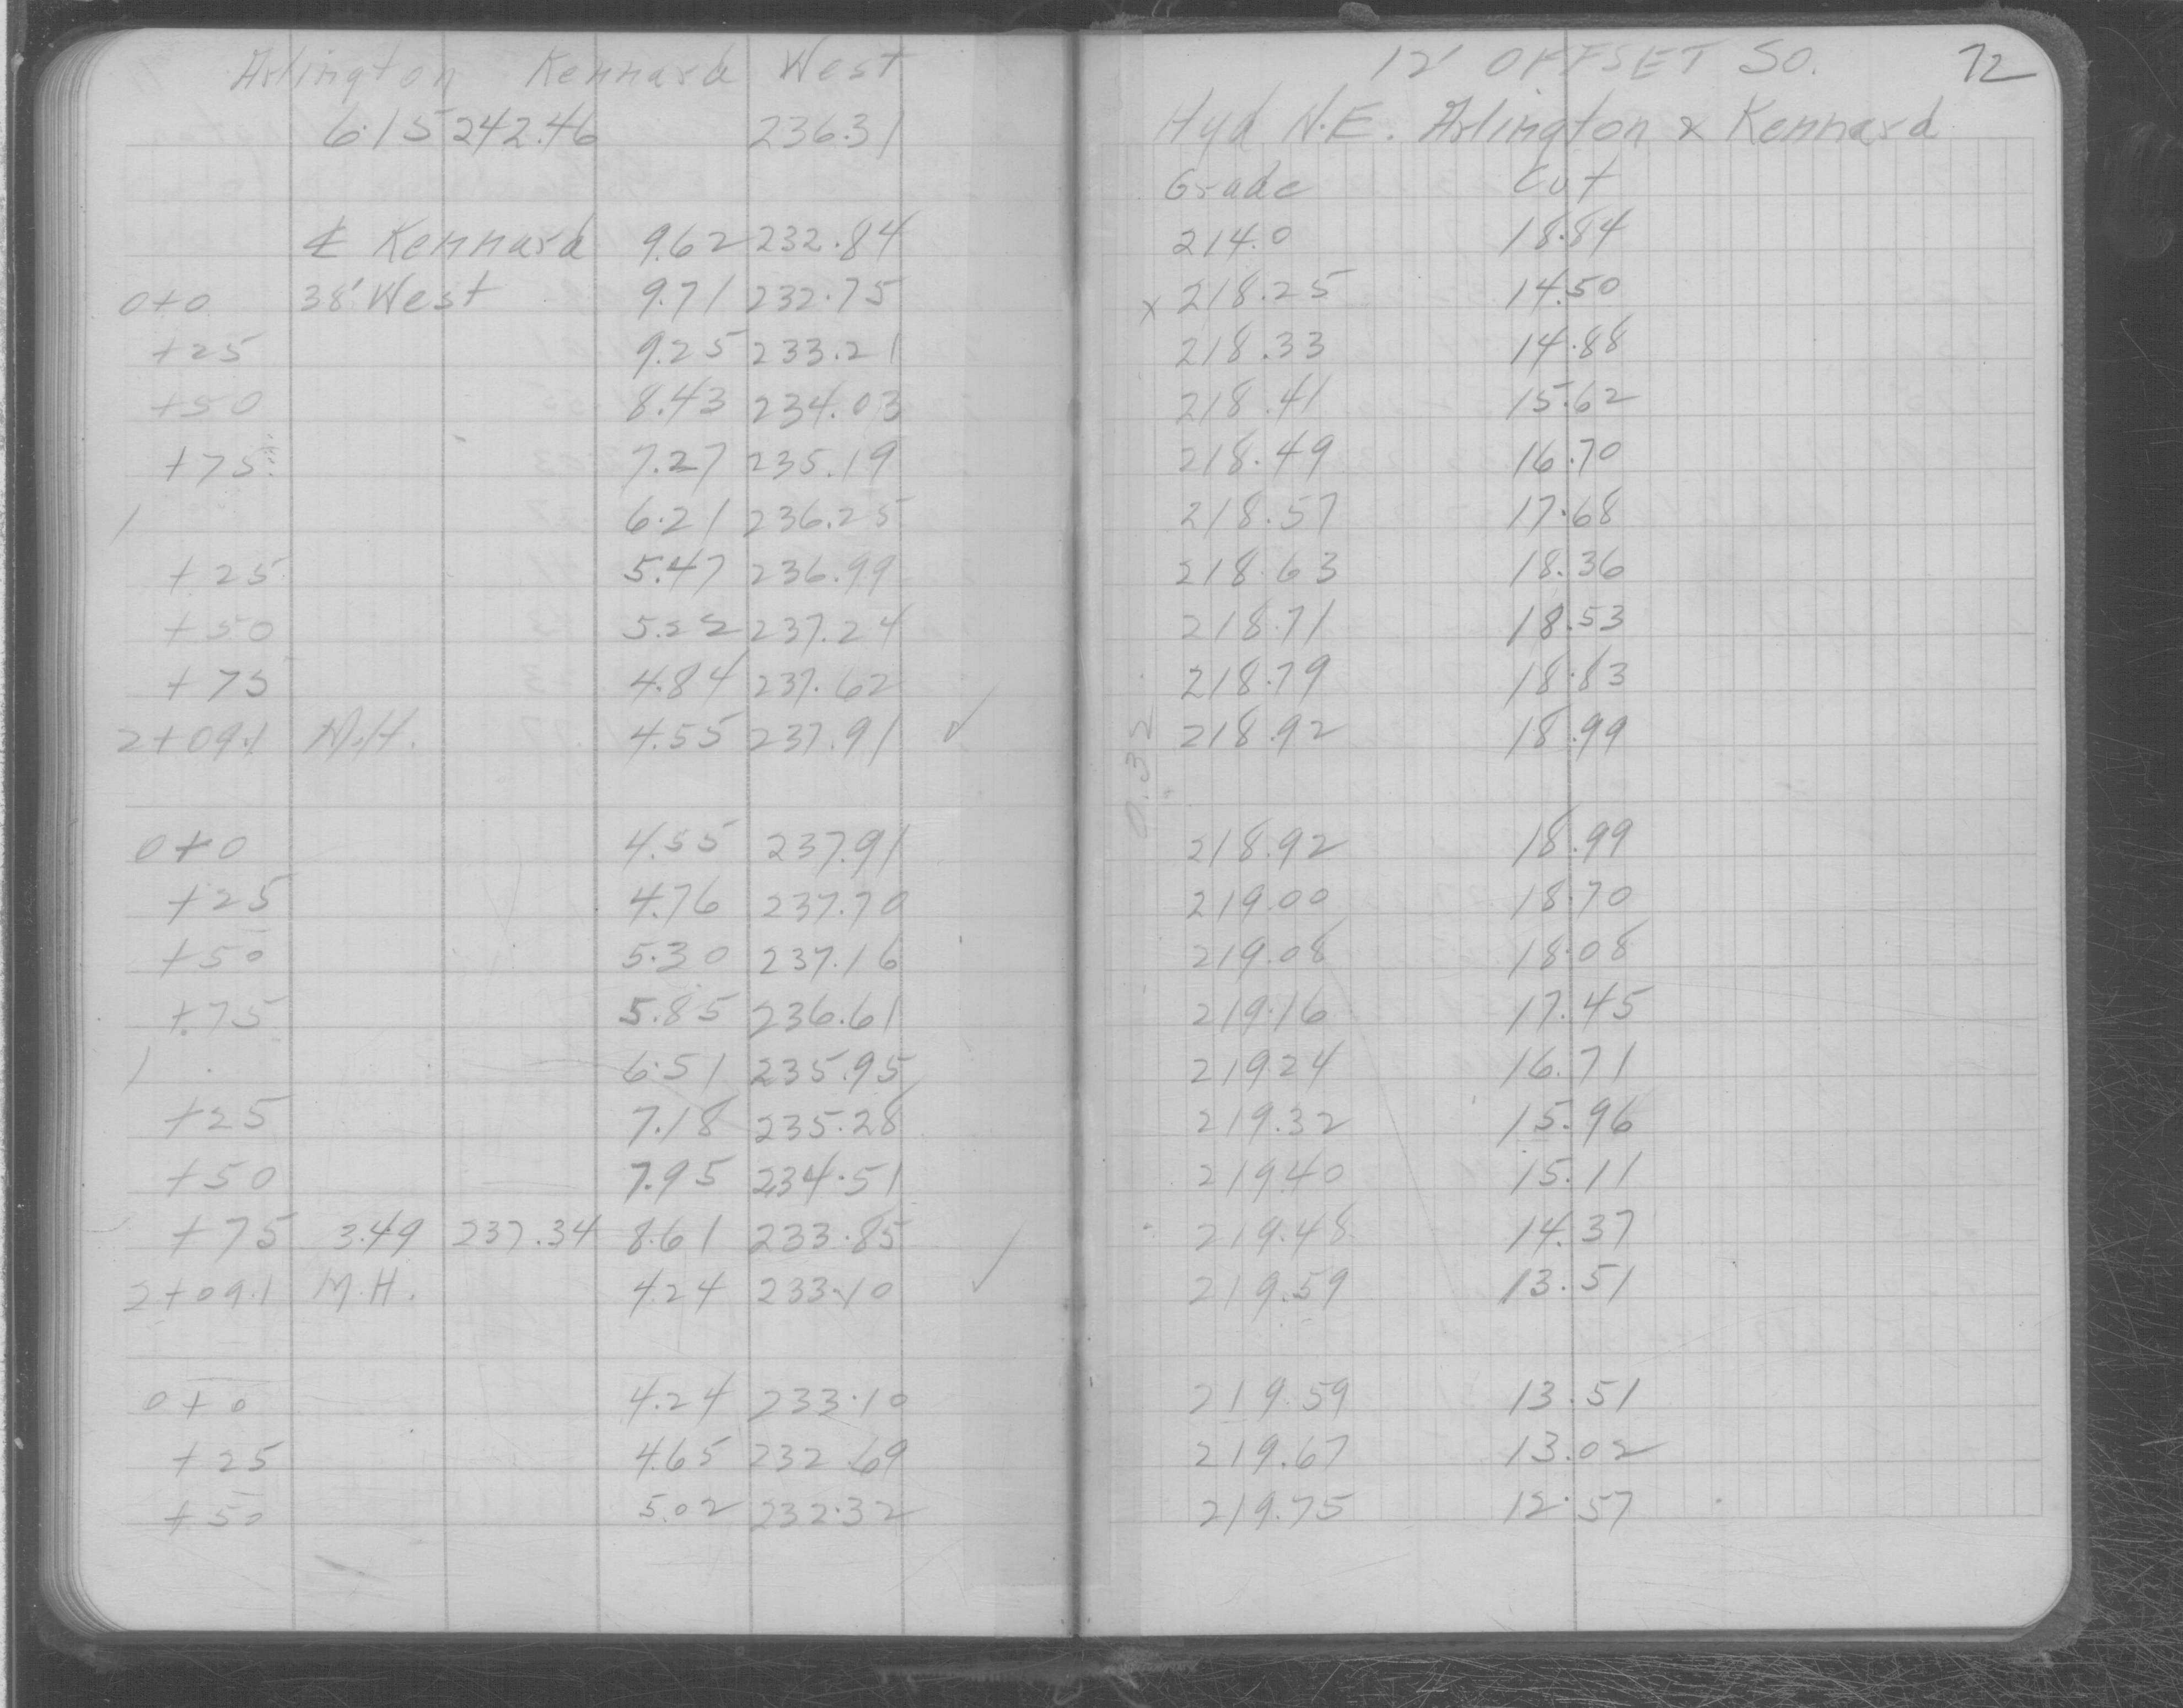 Arlington Kennard West
6.15 242.46 236.31
℄ Kennard 9.62 232.84
0+0 38' West 9.71 232.75
+25 9.25 233.21
+50 8.43 234.03
+75 7.27 235.19
1 6.21 236.25
+25 5.47 236.99
+50 5.22 237.24
+75 4.84 237.62
2+09.1 M.H. 4.55 237.91 ✓
0+0 4.55 237.91
+25 4.76 237.70
+50 5.30 237.16
+75 5.85 236.61
1 6.51 235.95
+25 7.18 235.28
+50 7.95 234.51
+75 3.49 237.34 8.61 233.85
2+09.1 M.H. 4.24 233.10 ✓
0+0 4.24 233.10
+25 4.65 232.69
+50 5.02 232.32
12' OFFSET SO. 72
Hyd N.E. Arlington & Kennard
Grade Cut
214.0 18.84
x 218.25 14.50
218.33 14.88
218.41 15.62
218.49 16.70
218.57 17.68
218.63 18.36
218.71 18.53
218.79 18.83
218.92 18.99
0.32
218.92 18.99
219.00 18.70
219.08 18.08
219.16 17.45
219.24 16.71
219.32 15.96
219.40 15.11
219.48 14.37
219.59 13.51
219.59 13.51
219.67 13.02
219.75 12.57